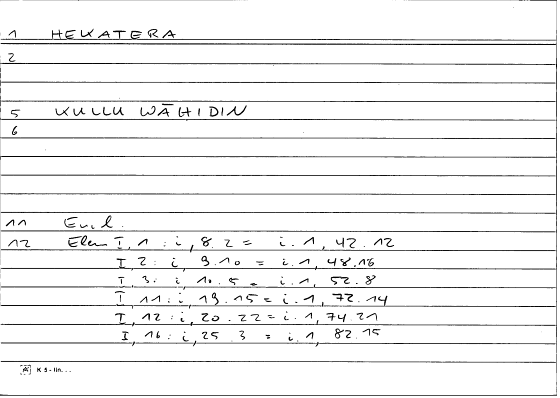 1 HEKATERA
2
5 KULLU WĀḤIDIN
6
11 Eucl.
12 Elem I, 1 : i, 8.2 = i. 1, 42.12
I, 2 : i, 9.10 = i. 1, 48.16
I, 3 : i, 10.5 = i. 1, 52.8
I, 11 : i, 19.15 = i. 1, 72.14
I, 12 : i, 20.22 = i. 1, 74.21
I, 16 : i, 25.3 = i. 1, 82.15
K 5 - lin...